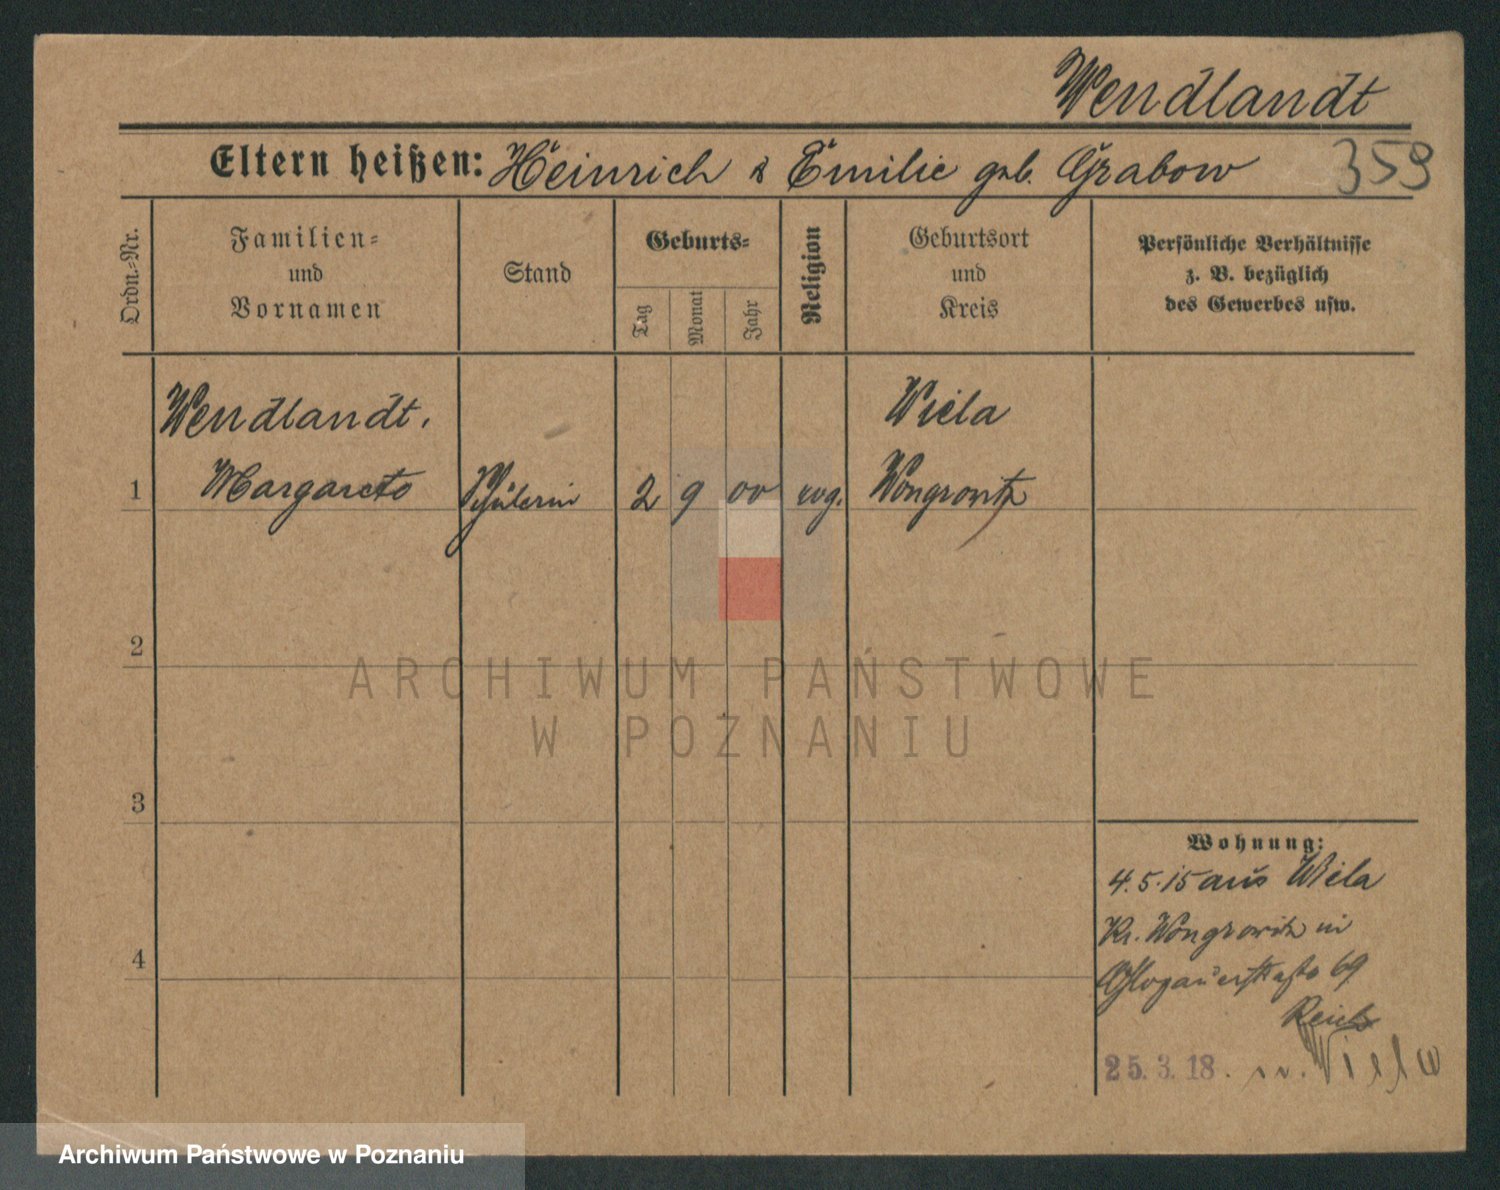 Wendlandt
Eltern heißen: Heinrich & Emilie geb. Grabow 359
Ordn.-Nr.
Familien-
und
Vornamen
Stand
Geburts-
Tag
Monat
Jahr
Religion
Geburtsort
und
Kreis
Persönliche Verhältnisse
z. B. bezüglich
des Gewerbes usw.
Wendlandt. Wiela
1 Margarete Schülerin 2 9 00 evg. Wongrowitz
2
ARCHIWUM PAŃSTWOWE
W POZNANIU
3
Wohnung:
4.5.15 aus Wiela
Kr. Wongrowitz in
4
Glogauerstraße 69
Reich
25.3.18. n. Wiela
Archiwum Państwowe w Poznaniu